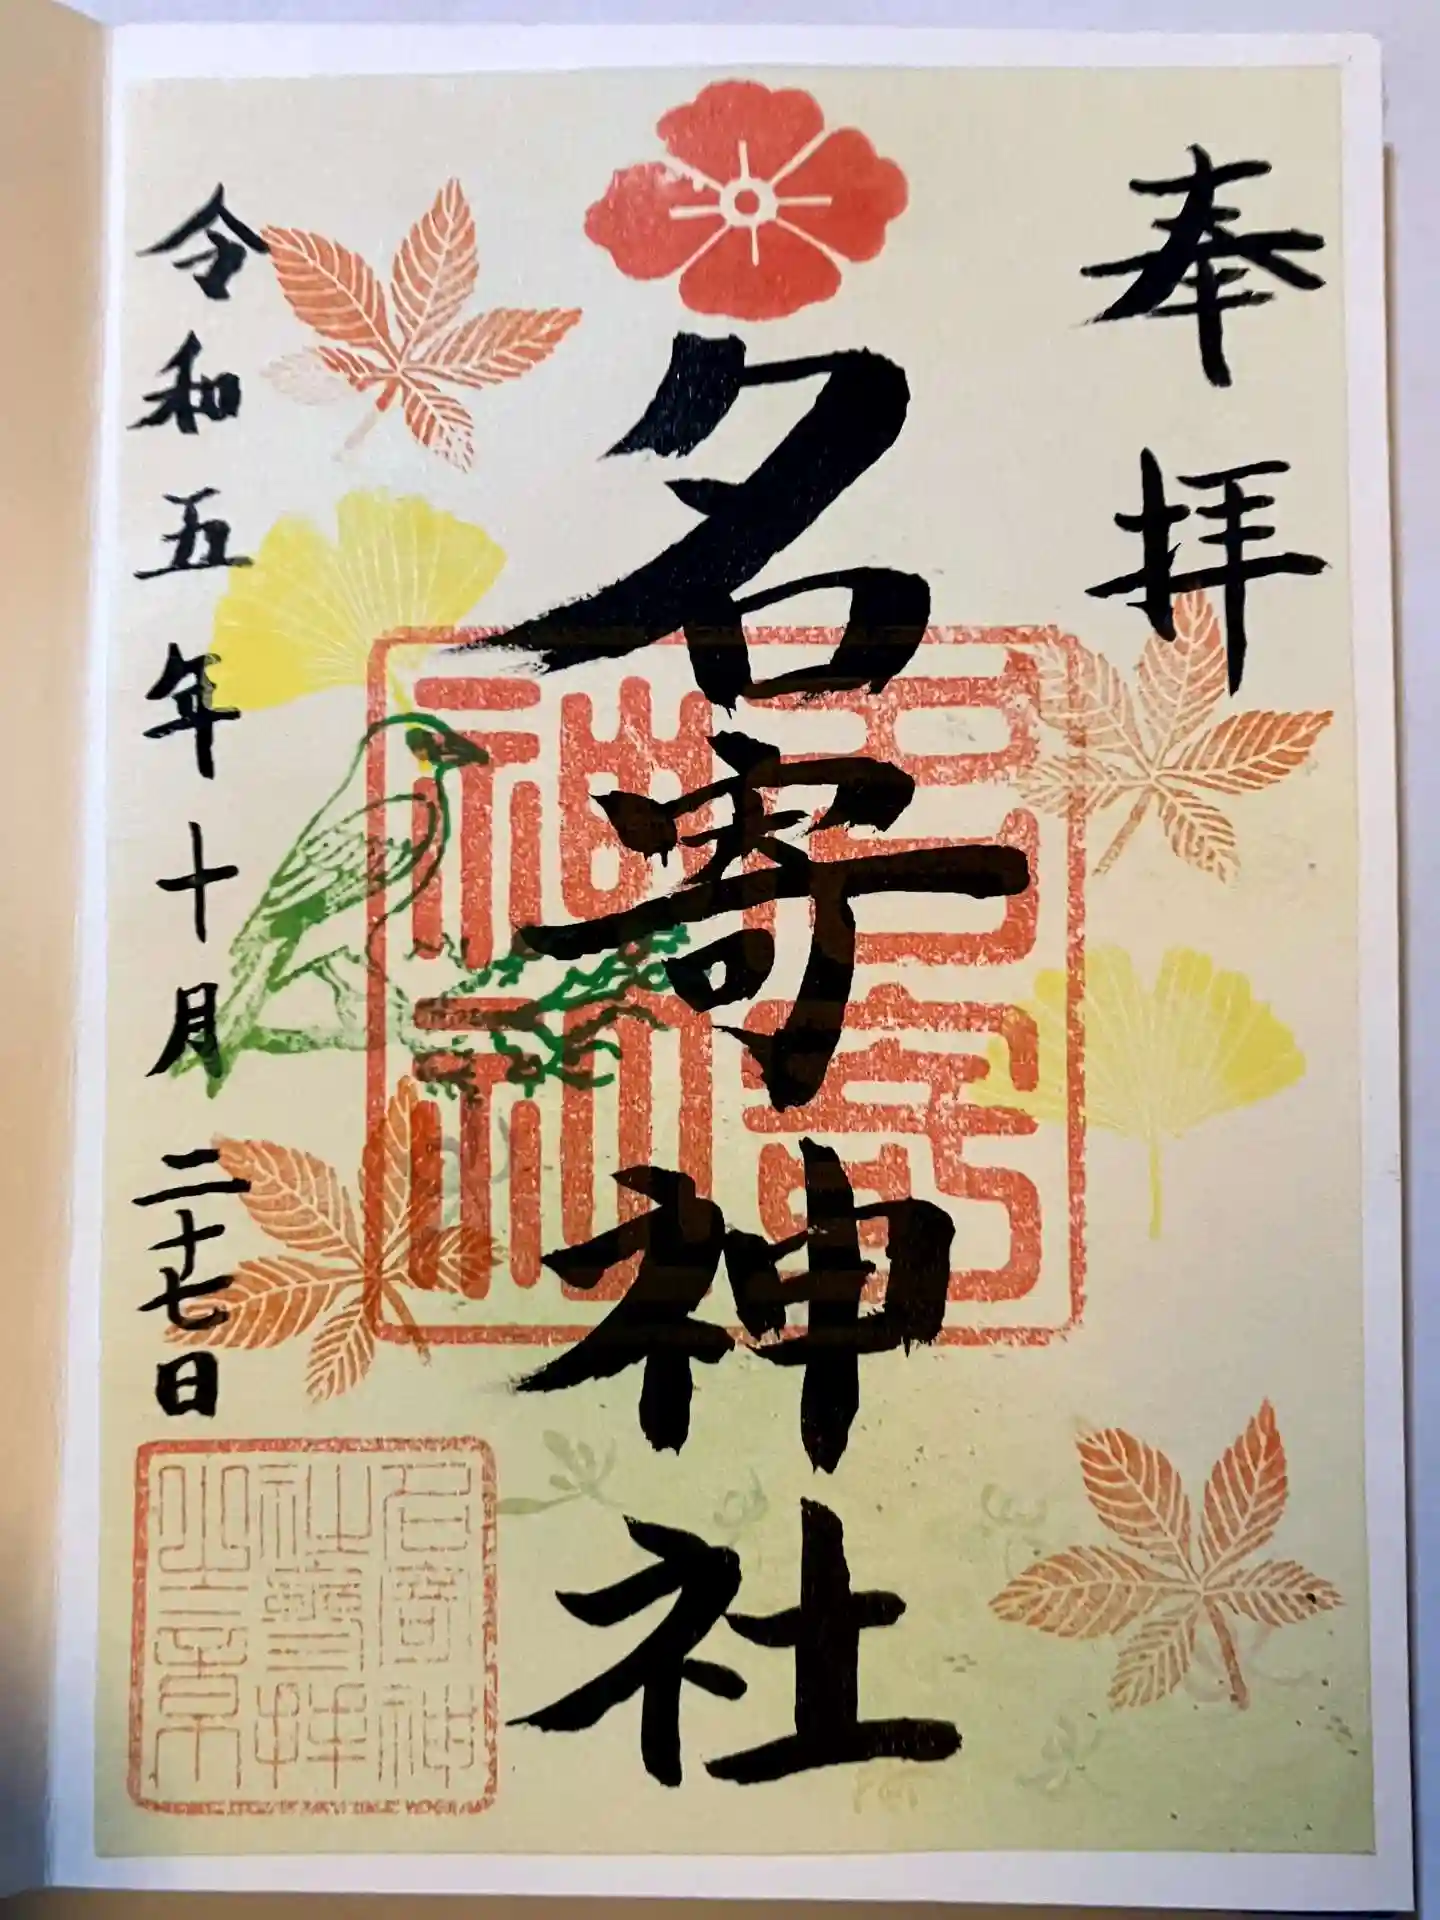 奉拝
名寄神社
名寄神社
令和五年十月二十七日